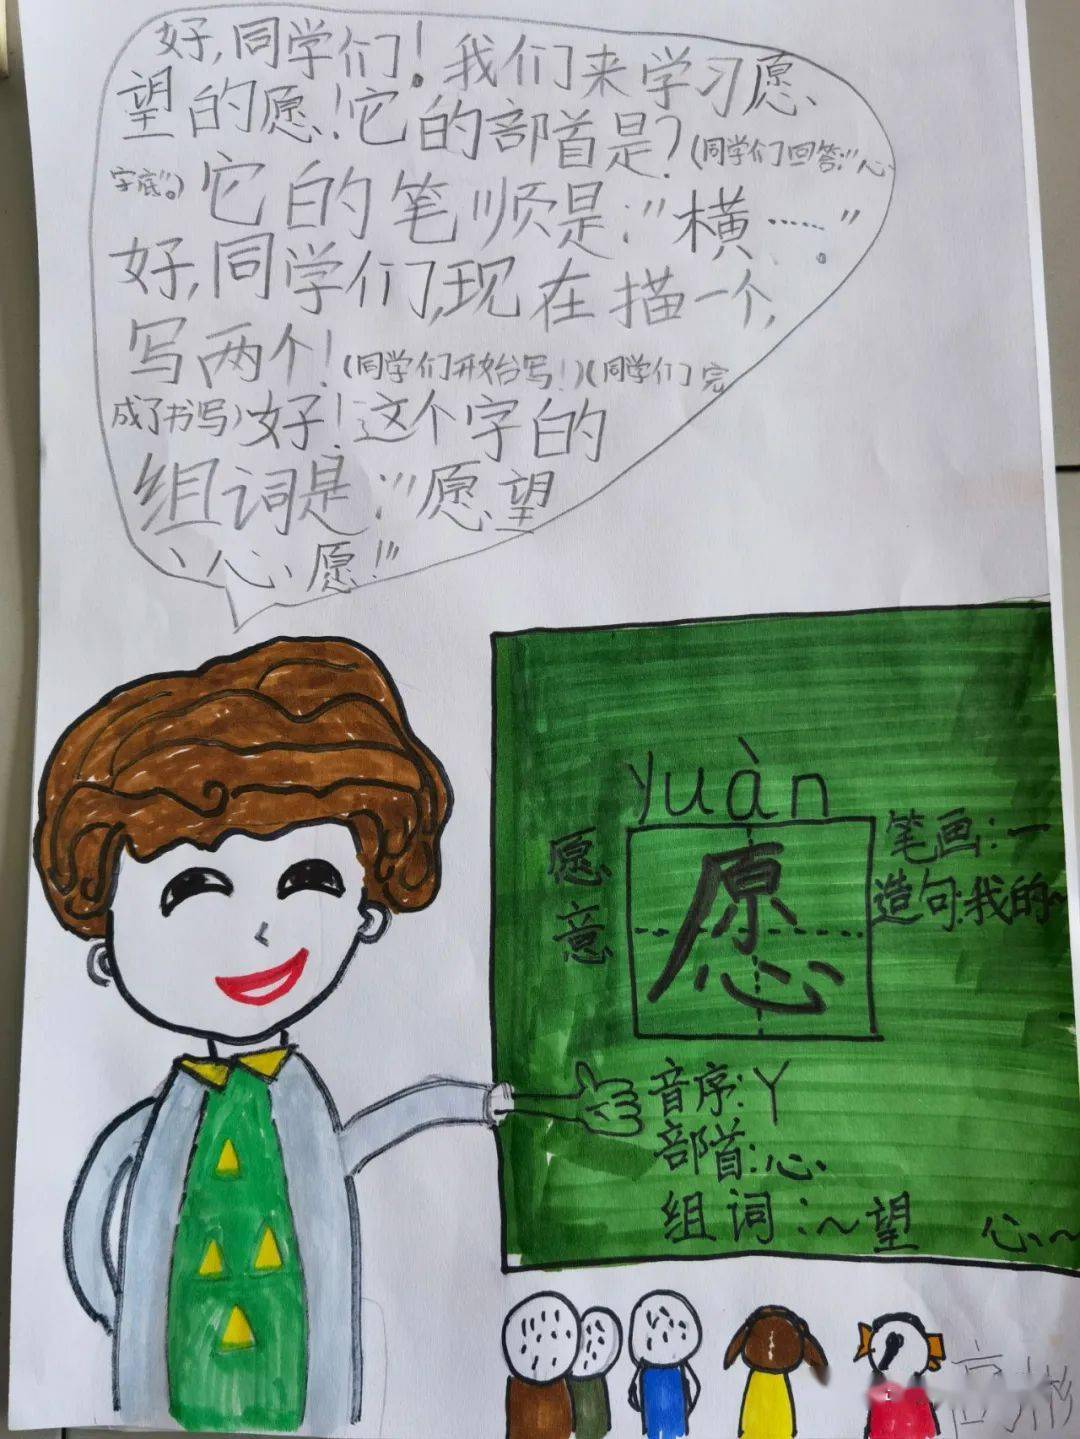 好,同学们!我们来学习愿
望的愿!它的部首是?(同学们回答:"心
字底"。)它的笔顺是:"横……"。
好,同学们,现在描一个,
写两个!(同学们开始写!)(同学们完
成了书写)好!这个字的
组词是:"愿望
、心愿!"
yuàn
愿
愿意
笔画:一
造句:我的~
音序:Y
部首:心
组词:~望 心~